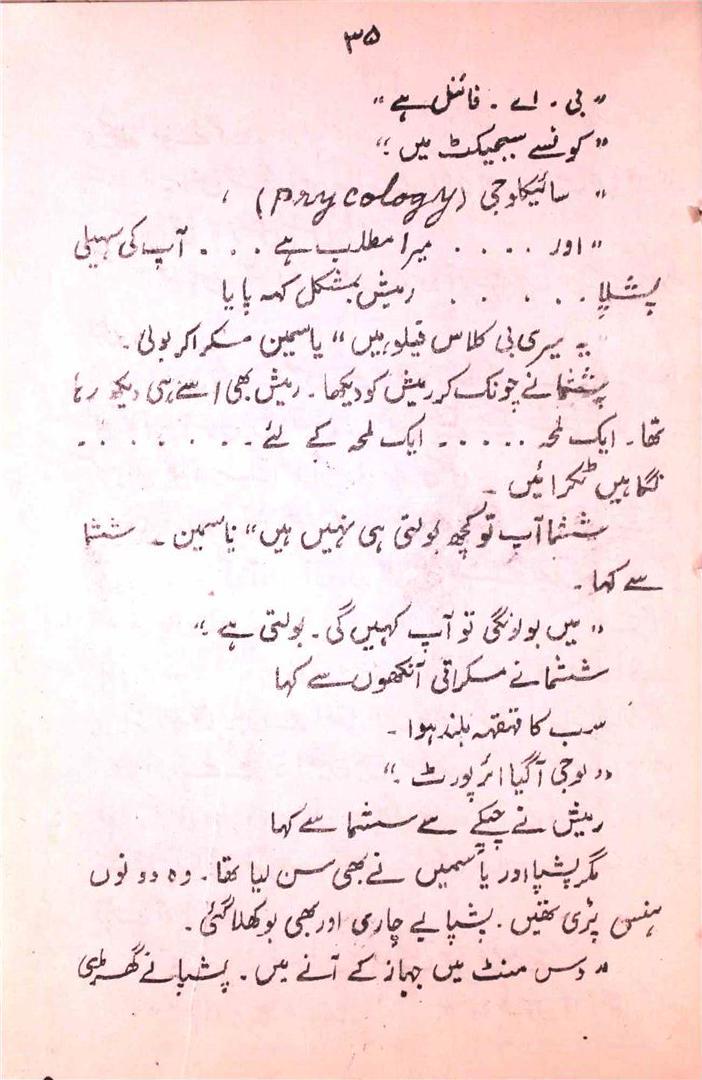 ۳۵
" بی . اے . فائنل ہے "
" کونسے سبجیکٹ میں ؟ "
" سائیکلوجی (prycology) ،
" اور . . . . میرا مطلب ہے . . . آپ کی سہیلی
پشلپا . . . . . . رمیش بمشکل کہہ پایا
یہ میری بی کلاس فیلو ہیں " یاسمین مسکرا کر بولی ۔
پششمانے چونک کر رمیش کو دیکھا ۔ رمیش بھی اسے ہی دیکھ رہا
تھا ۔ ایک لمحہ ..... ایک لمحہ کے لئے ۔ . . . . . . .
نگاہیں ٹکرائیں ۔
ششما آپ تو کچھ بولتی ہی نہیں ہیں " یاسمین ۔ ششما
سے کہا ۔
" میں بولونگی تو آپ کہیں گی ۔ بولتی ہے ۔ "
ششمانے مسکراتی آنکھوں سے کہا
سب کا قہقہہ بلند ہوا ۔
" لوجی آگیا ائرپورٹ ۔ "
رمیش نے چپکے سے سشما سے کہا
مگر پشپا اور یاسمیں نے بھی سن لیا تھا ۔ وہ دونوں
ہنس پڑی تھیں ۔ پشپا بے چاری اور بھی بوکھلا گئی ۔
" دس منٹ میں جہاز کے آنے میں ۔ پشپانے گھڑی